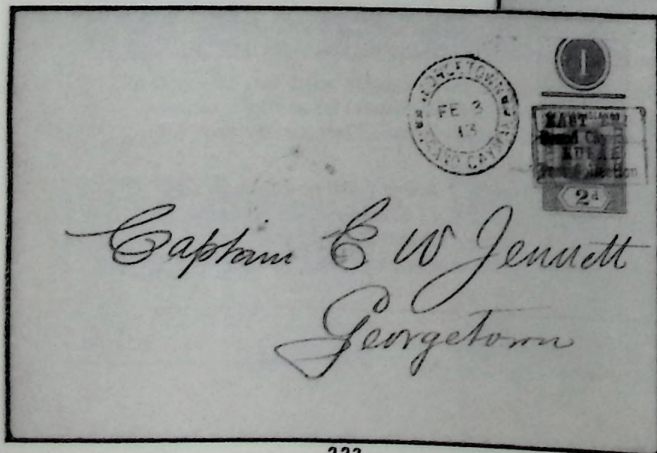 1
GEORGETOWN
FE 3
13
GRAND CAYMAN
EAST
Grand
2d
Captain E W Jennett
Georgetown